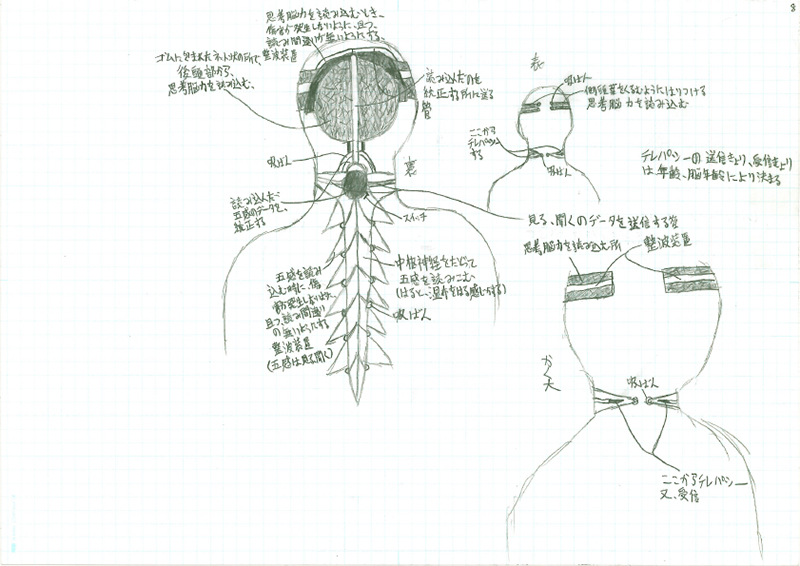 8
思考脳力を読み込むとき、
傷害が発生しないように、且つ、
読み間違いが無いようにする、
整波装置
ゴムに包まれたネット状の所で、
後頭部から、
思考脳力を読み込む、
読み込んだのを
校正する所に送る
管
吸ばん
裏
読み込んだ
五感のデータを、
校正する
スイッチ
見る、聞くのデータを送信する管
五感を読み
込む時に、傷
害が発生しないように、
且つ、読み間違い
の無いようにする
整波装置
(五感は見る聞く)
中枢神経をたどって
五感を読みこむ
(はると、湿布をはる感じがする)
吸ばん
表
吸ばん
側頭葉をくるむようにはりつける
思考脳力を読み込む
ここから
テレパシー
する
吸ばん
テレパシーの送信きょり、受信きょり
は年齢、脳年齢により決まる
思考脳力を読み込む所
整波装置
かく大
吸ばん
ここからテレパシー
又、受信